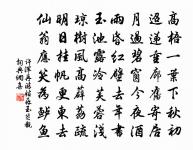 高梧一葉下秋初
迢遞重廊舊寄居
月過碧窗今夜酒
雨昏紅壁去年書
玉池露冷芙蓉淺
瓊樹風高薜荔疏
明日挂帆更東去
仙翁應笑為鱸魚
許渾再游姑蘇玉芝觀